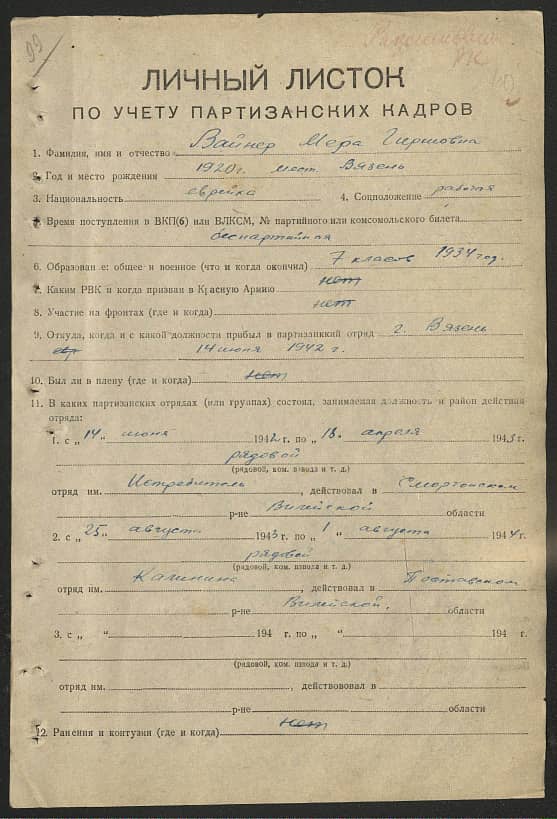 99
ЛИЧНЫЙ ЛИСТОК
ПО УЧЕТУ ПАРТИЗАНСКИХ КАДРОВ
1. Фамилия, имя и отчество Вайнер Мера Гиршовна
2. Год и место рождения 1920г. мест. Вязень
3. Национальность еврейка 4. Соцположение рабочая
5. Время поступления в ВКП(б) или ВЛКСМ, № партийного или комсомольского билета
беспартийная
6. Образование: общее и военное (что и когда окончил) 7 класов 1934 год.
7. Каким РВК и когда призван в Красную Армию нет
8. Участие на фронтах (где и когда) нет
9. Откуда, когда и с какой должности прибыл в партизанский отряд г. Вязень
14 июня 1942 г.
10. Был ли в плену (где и когда) нет
11. В каких партизанских отрядах (или группах) состоял, занимаемая должность и район действия
отряда:
1. с „14" июня 1942 г. по „18" апреля 1943 г.
рядовой
(рядовой, ком. взвода и т. д.)
отряд им. Истребитель, действовал в Сморгонском
р-не Вилейской области
2. с „25" августа 1943 г. по „1" августа 1944 г.
рядовой
(рядовой, ком. взвода и т. д.)
отряд им. Калинина, действовал в Поставском
р-не Вилейской. области
3. с „ " 194 г. по „ " 194 г.
(рядовой, ком. взвода и т. д.)
отряд им. , действововал в
р-не области
12. Ранения и контузии (где и когда) нет